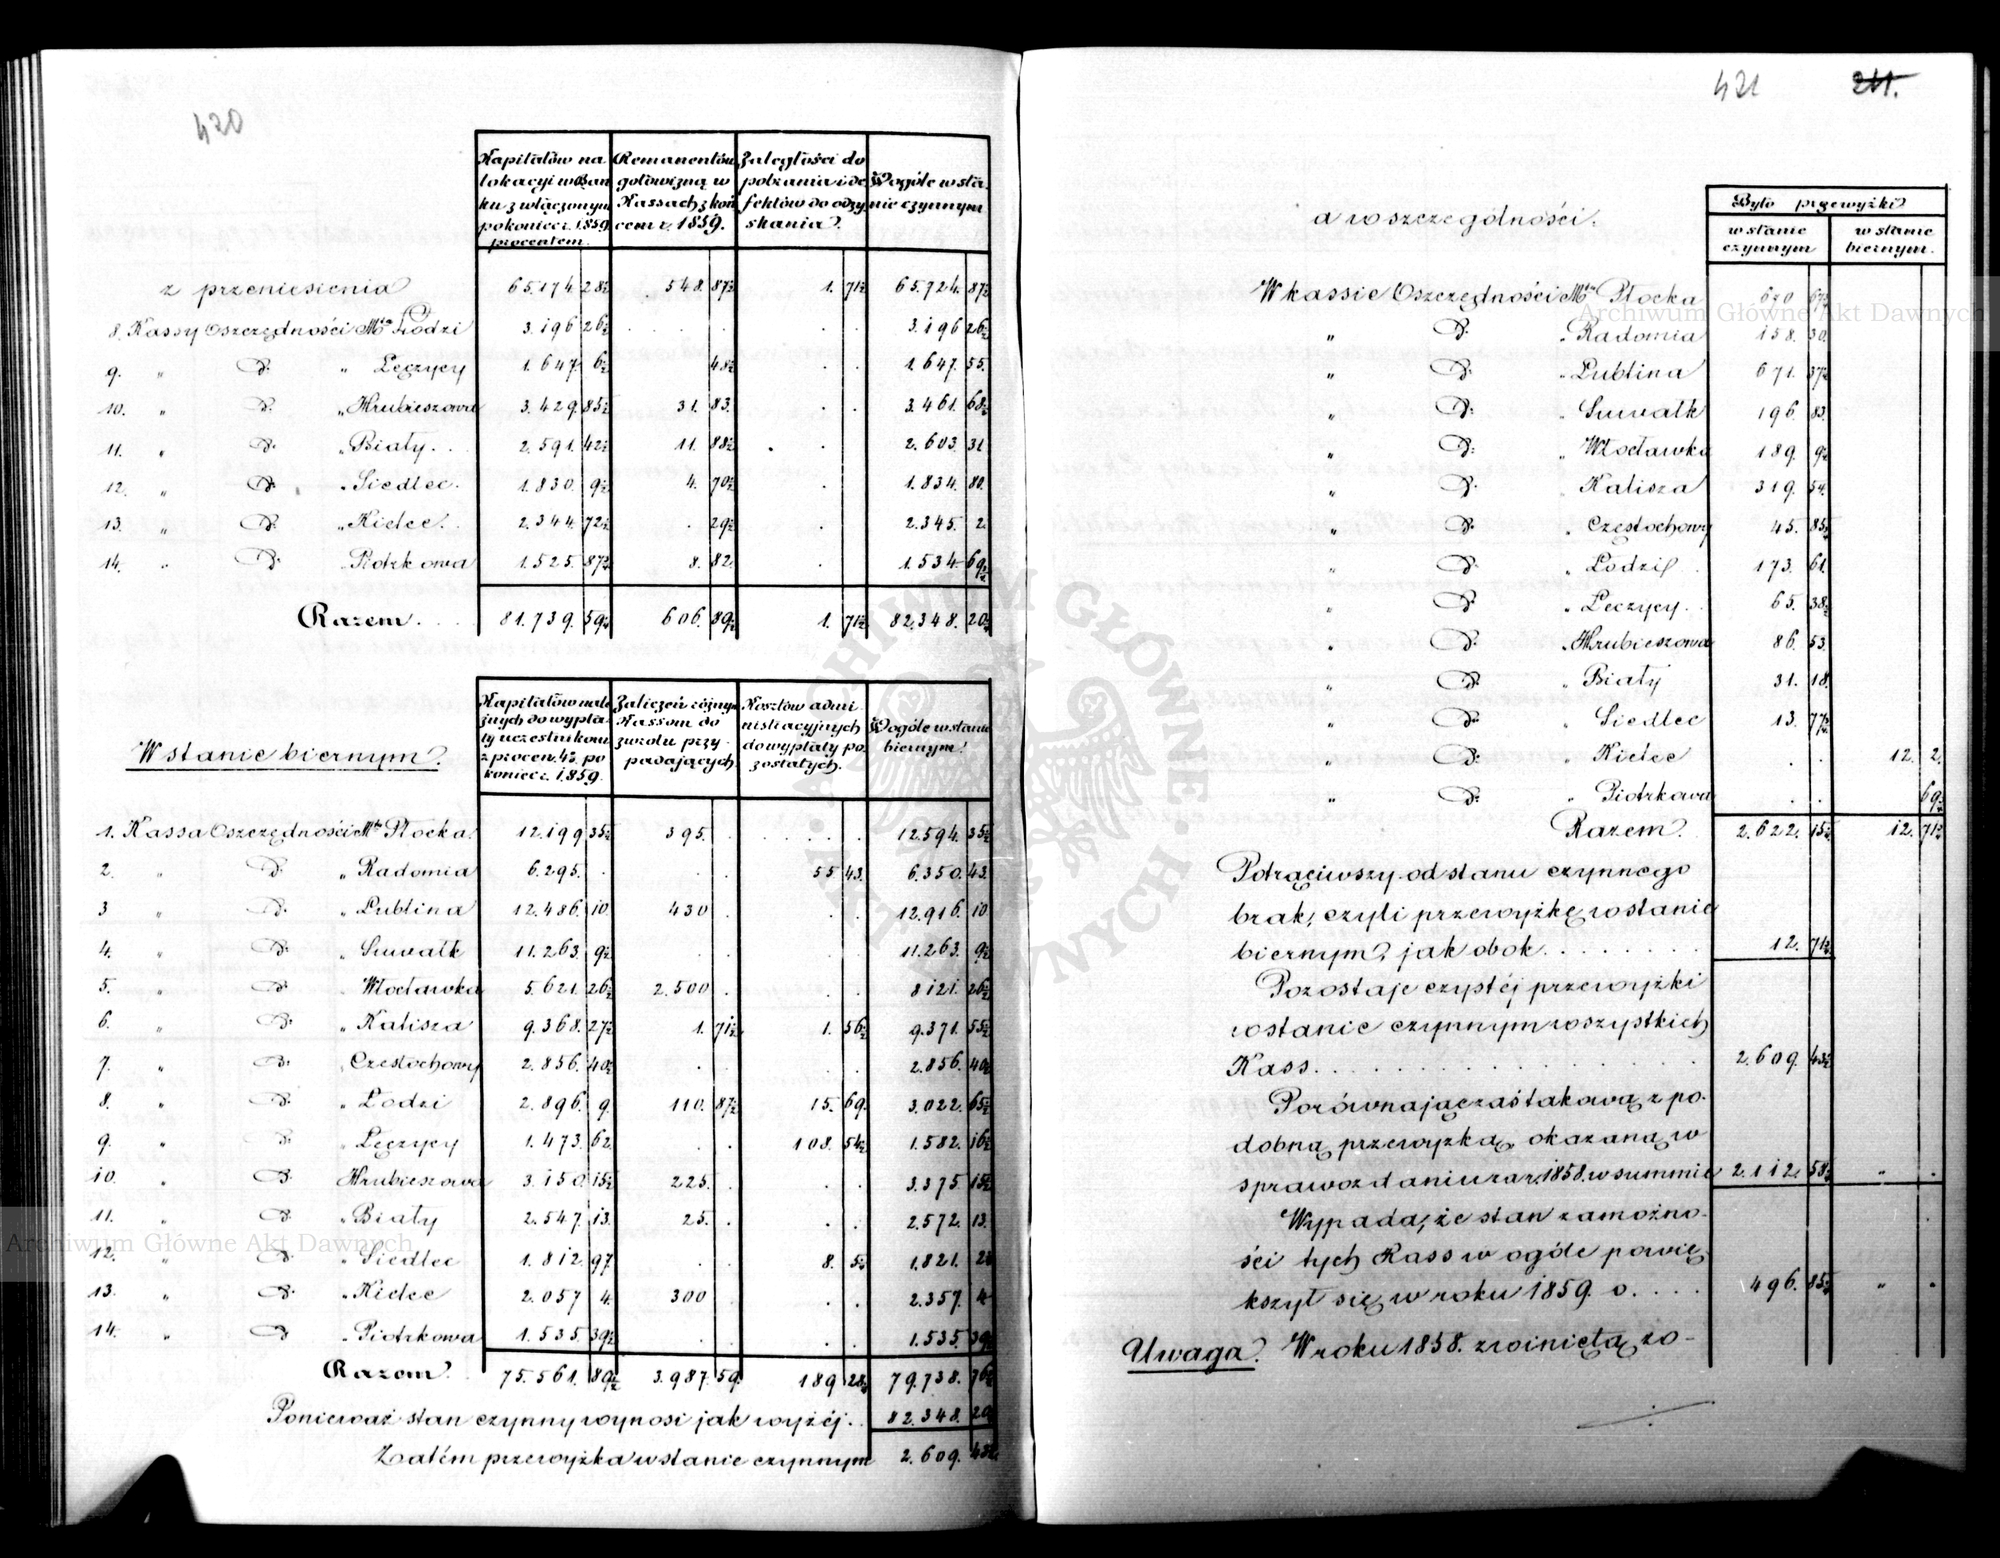 420
Kapitałów na Remanentów Zaległości do
lokacyi w Ban gotowizną w pobrania i de Wogóle w sta
ku z włączonym Kassach z koń fektów do odzy nie czynnym
po koniec r. 1859 cem r. 1859. skania.
procentem.
z przeniesienia 65.174. 28½ 548. 87½ 1. 71½ 65.724. 87½
8. Kassy Oszczędności Mta Łodzi 3.196 26½ . . 3.196 26½
9. " D. " Łęczycy 1.647. 6½ 48½ . . 1.647. 55.
10. " D. " Hrubieszowa 3.429. 85½ 31. 83. . . 3.461. 68½
11. " D. " Biały. 2.591. 42½ 11. 88½ . . 2.603. 31
12. " D. " Siedlec. 1.830. 9½ 4. 70½ . 1.834. 80.
13. " D. " Kielec. 2.344. 72½ . 29½ . 2.345. 2.
14. " D. " Piotrkowa 1.525. 87½ 8. 82. . 1.534. 69½
Razem. 81.739. 59½ 606. 89½ 1. 71½ 82.348. 20½
W stanie biernym.
Kapitałów nale Zaliczeń różnym Kosztów admi-
żnych do wypła Kassom do nistracyjnych Wogóle w stanie
ty uczestnikom zwrotu przy- do wypłaty po biernym.
z procen. 4% po padających. zostałych.
koniec r. 1859.
1. Kassa Oszczędności Mta Płocka. 12.199 35½ 395. . . . 12.594. 35½
2. " D. " Radomia 6.295. . . . 55 43. 6.350. 43.
3 " D. " Lublina 12.486. 10. 430 . . . 12.916. 10
4. " D. " Suwałk 11.263. 9½ . . . . 11.263. 9½
5. " D. " Włocławka 5.621. 26½ 2.500 . . . 8121. 26½
6. " D. " Kalisza 9.368. 27½ 1. 71½ 1. 56½ 9.371. 55½
7. " D. Częstochowy 2.856. 40½ . . . . 2.856. 40½
8. " D. " Łodzi 2.896. 9. 110. 87½ 15. 69. 3.022. 65½
9. " D. " Łęczycy 1.473. 62 . . 108. 54½ 1.582. 16½
10. " D. Hrubieszowa 3.150. 15½ 225. . . . 3.375. 15½
11. " D. " Biały 2.547. 13. 25. . . . 2.572. 13.
12. " D. " Siedlec 1.812. 97. . . 8. 5½ 1.821. 2½
13. " D. " Kielec 2.057 4. 300 . . . 2.357. 4
14. " D " Piotrkowa 1.535. 39½ . . . . 1.535. 39½
Razem. 75.561. 89½ 3.987. 59. 189 28½ 79.738. 76½
Ponieważ stan czynny wynosi jak wyżéj. 82.348. 20½
Zatém przewyżka w stanie czynnym 2.609. 43½
421 211.
a w szczególności.
Było przewyżki
w stanie czynnym w stanie biernym.
W kassie Oszczędności Mta Płocka 670 67½
" D. " Radomia 158. 30.
" D. " Lublina 671. 37½
" D. " Suwałk 196. 83.
" D. " Włocławka 189. 9½
" D. " Kalisza 319. 54.
" D. " Częstochowy 45. 85½
" D. " Łodzi 173. 61.
" D. " Łęczycy 65. 38½
" D. " Hrubieszowa 86. 53.
" D. " Biały 31. 18.
" D. " Siedlec 13. 77½
" D. " Kielec . . 12. 2.
" D. " Piotrkowa . . 69½
Razem. 2.622. 15½ 12. 71½
Potrąciwszy od stanu czynnego
brak, czyli przewyżkę w stanie
biernym, jak obok. . . . . . . . 12. 71½
Pozostaje czystéj przewyżki
w stanie czynnym wszystkich
Kass. . . . . . . . . . . 2.609. 43½
Porównając zaś takową z po-
dobną przewyżką, okazaną w
sprawozdaniu za r. 1858. w summie 2.112. 58½ " .
Wypada, że stan zamożno-
ści tych Kass w ogóle powię
kszył się w roku 1859. o. . . . 496. 85½ " .
Uwaga. W roku 1858. zwiniętą zo-
Archiwum Główne Akt Dawnych
Archiwum Główne Akt Dawnych
ARCHIWUM GŁÓWNE AKT DAWNYCH